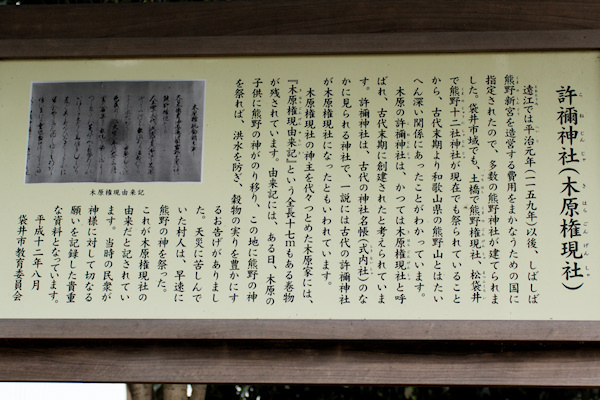 許禰神社(木原権現社)
こねじんじゃ きはらごんげんしゃ
遠江では平治元年(一一五九年)以後、しばしば
熊野新宮を造営する費用をまかなうための国に
指定されたので、多数の熊野神社が建てられま
した。袋井市域でも、土橋で熊野権現社、松袋井
で熊野十二社神社が現在でも祭られていること
から、古代末期より和歌山県の熊野山とはたい
へん深い関係にあったことがわかっています。
木原の許禰神社は、かつては木原権現社と呼
ばれ、古代末期に創建されたと考えられていま
す。許禰神社は、古代の神社名帳(式内社)のな
かに見られる神社で、一説には古代の許禰神社
が木原権現社になったともいわれています。
木原権現社の神主を代々つとめた木原家には、
『木原権現由来記』という全長十七mもある巻物
が残されています。由来記には、ある日、木原の
子供に熊野の神がのり移り、この地に熊野の神
を祭れば、洪水を防ぎ、穀物の実りを豊かにす
るお告げがありまし
た。天災に苦しんで
いた村人は、早速に
熊野の神を祭った。
これが木原権現社の
由来だと記されてい
ます。当時の民衆が
神様に対して切なる
願いを記録した貴重
な資料となっています。
平成十二年八月
袋井市教育委員会
木原権現由来記